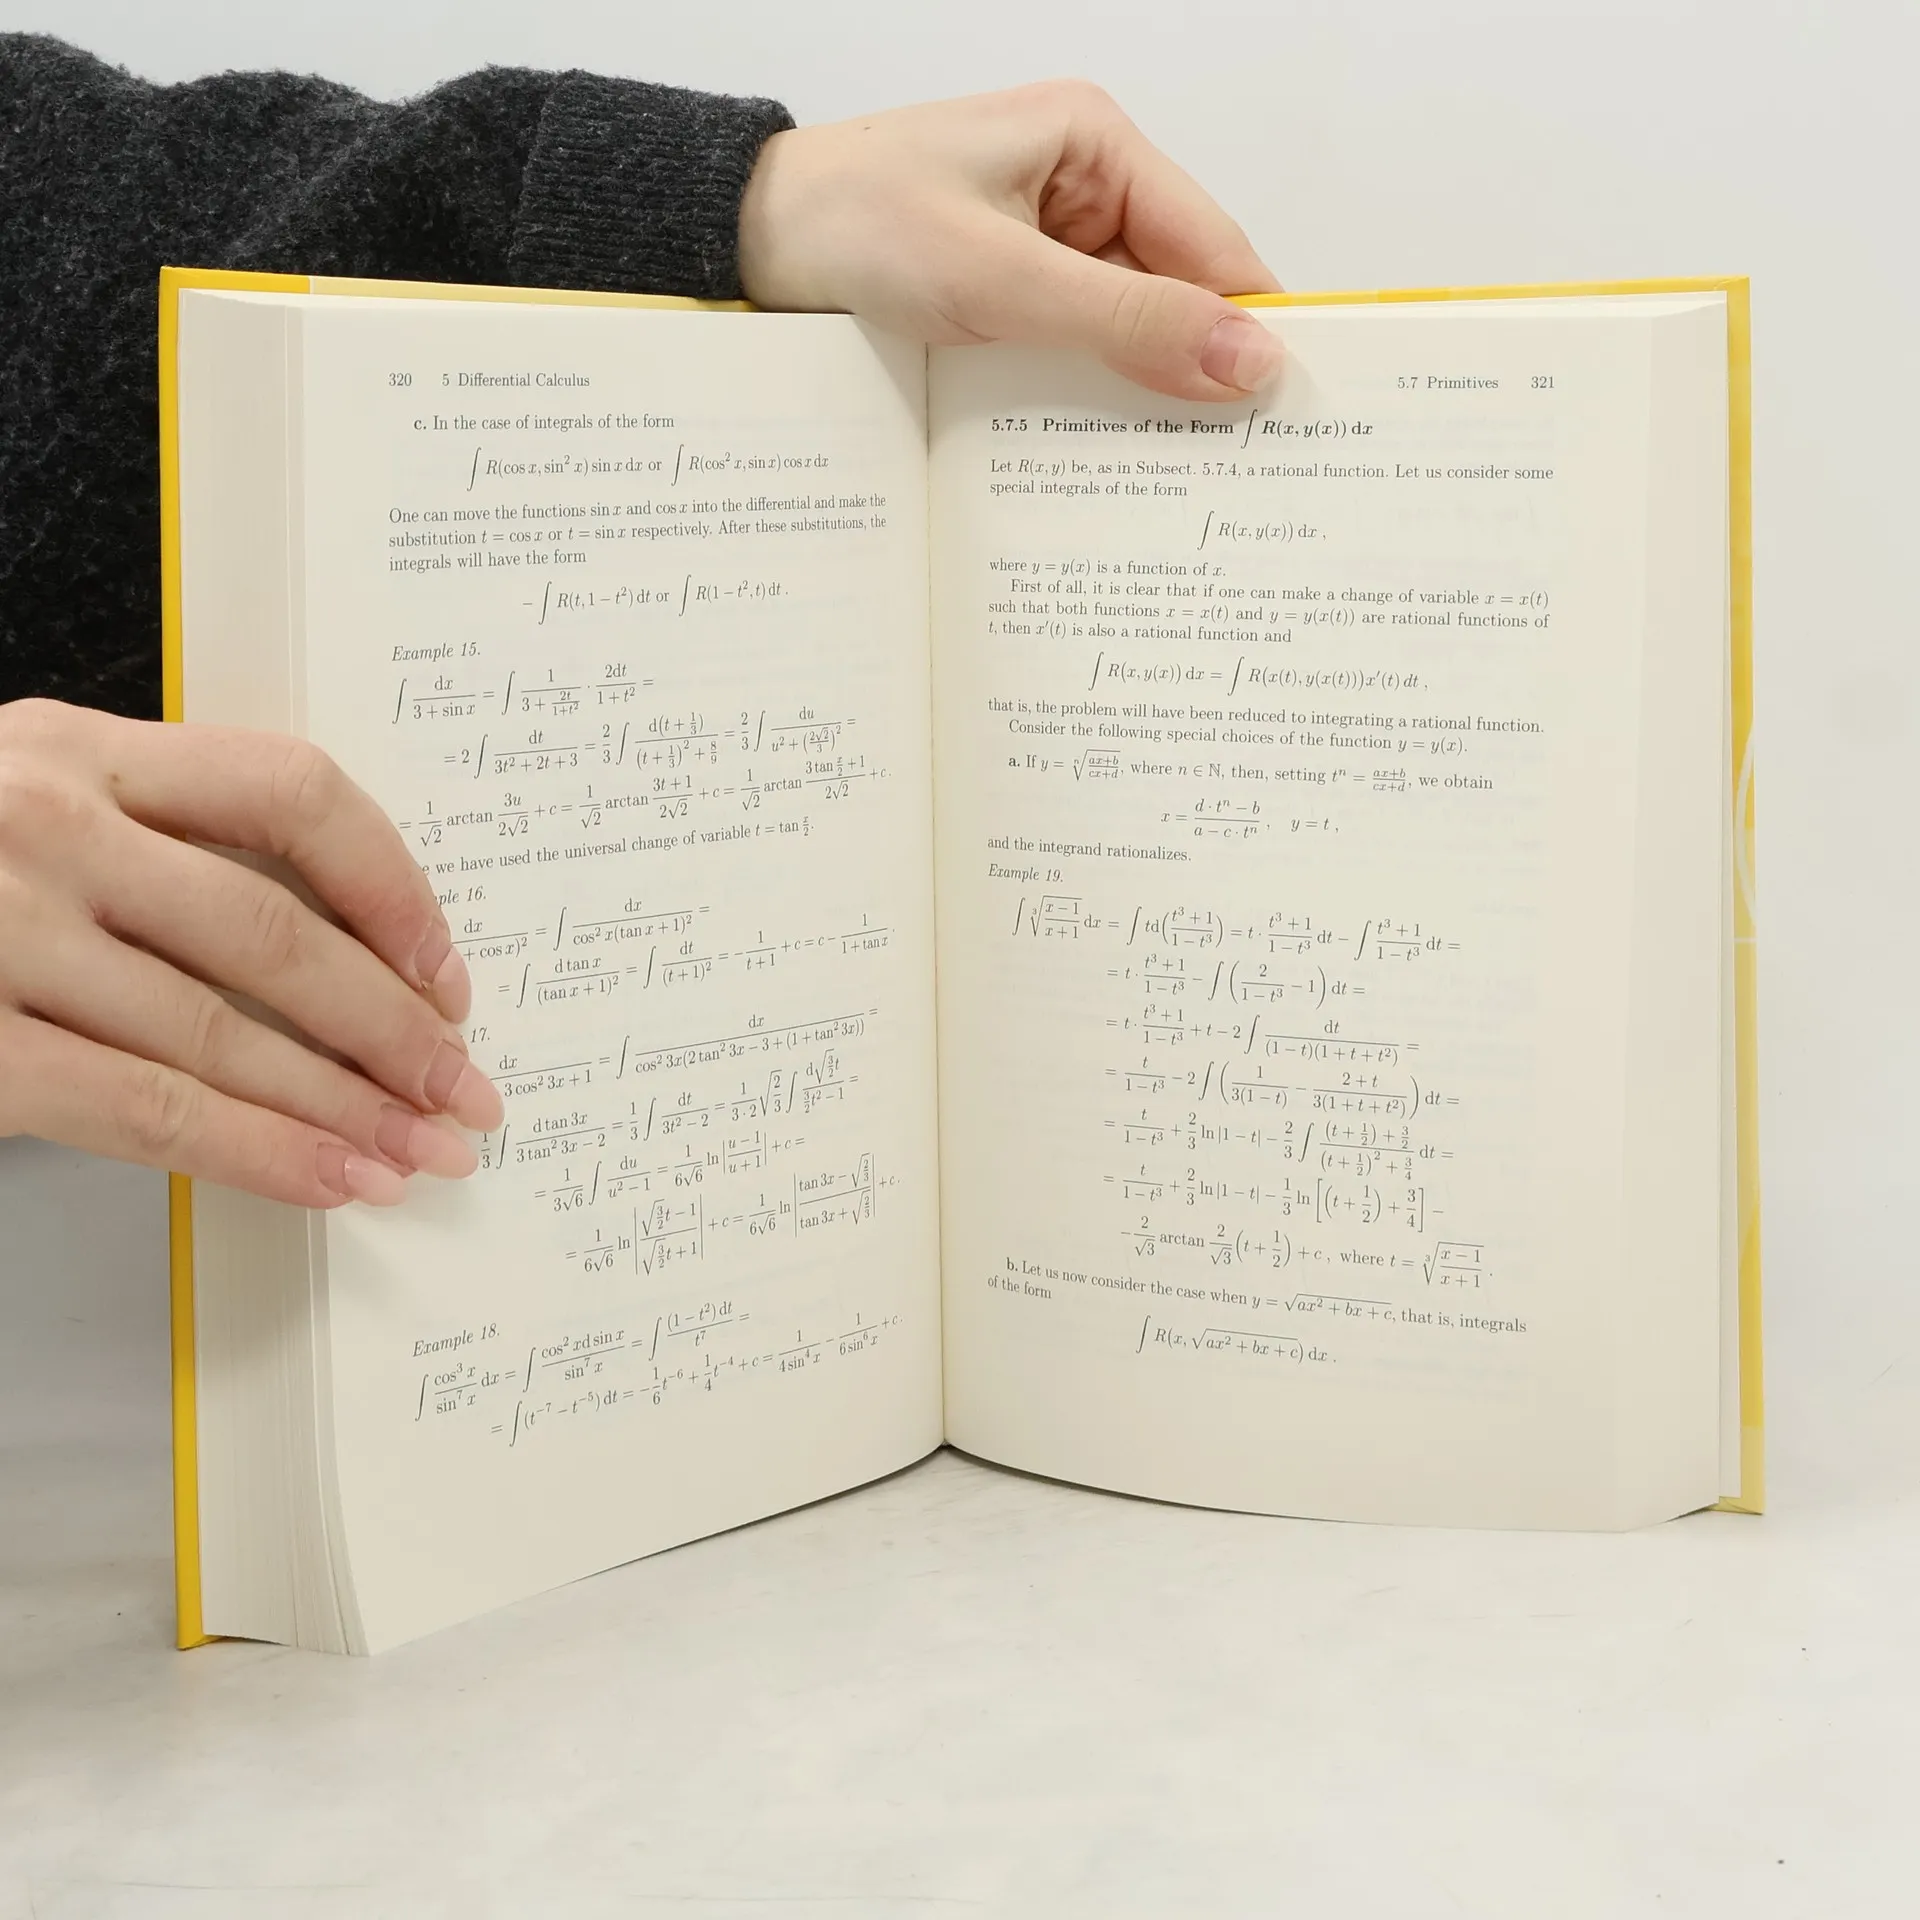 320 5 Differential Calculus
c. In the case of integrals of the form
∫ R(cos x, sin² x) sin x dx or ∫ R(cos² x, sin x) cos x dx
One can move the functions sin x and cos x into the differential and make the
substitution t = cos x or t = sin x respectively. After these substitutions, the
integrals will have the form
− ∫ R(t, 1 − t²) dt or ∫ R(1 − t², t) dt .
Example 15.
∫ dx/(3 + sin x) = ∫ 1/(3 + 2t/(1+t²)) · 2dt/(1 + t²) =
= 2 ∫ dt/(3t² + 2t + 3) = 2/3 ∫ d(t + 1/3)/((t + 1/3)² + 8/9) = 2/3 ∫ du/(u² + (2√2/3)²) =
= 1/√2 arctan 3u/(2√2) + c = 1/√2 arctan (3t + 1)/(2√2) + c = 1/√2 arctan (3 tan x/2 + 1)/(2√2) + c .
we have used the universal change of variable t = tan x/2.
16.
dx/( + cos x)² = ∫ dx/(cos² x(tan x + 1)²) =
= ∫ d tan x/(tan x + 1)² = ∫ dt/(t + 1)² = − 1/(t + 1) + c = c − 1/(1 + tan x) .
17.
dx/(3 cos² 3x + 1) = ∫ dx/(cos² 3x(2 tan² 3x − 3 + (1 + tan² 3x))) =
1/3 ∫ d tan 3x/(3 tan² 3x − 2) = 1/3 ∫ dt/(3t² − 2) = 1/(3 · 2) √(2/3) ∫ d√(3/2)t/(3/2 t² − 1) =
= 1/(3√6) ∫ du/(u² − 1) = 1/(6√6) ln |(u − 1)/(u + 1)| + c =
= 1/(6√6) ln |(√(3/2)t − 1)/(√(3/2)t + 1)| + c = 1/(6√6) ln |(tan 3x − √(2/3))/(tan 3x + √(2/3))| + c .
Example 18.
∫ cos³ x/sin⁷ x dx = ∫ cos² x d sin x/sin⁷ x = ∫ (1 − t²) dt/t⁷ =
= ∫ (t⁻⁷ − t⁻⁵) dt = − 1/6 t⁻⁶ + 1/4 t⁻⁴ + c = 1/(4 sin⁴ x) − 1/(6 sin⁶ x) + c .
5.7 Primitives 321
5.7.5 Primitives of the Form ∫ R(x, y(x)) dx
Let R(x, y) be, as in Subsect. 5.7.4, a rational function. Let us consider some
special integrals of the form
∫ R(x, y(x)) dx ,
where y = y(x) is a function of x.
First of all, it is clear that if one can make a change of variable x = x(t)
such that both functions x = x(t) and y = y(x(t)) are rational functions of
t, then x′(t) is also a rational function and
∫ R(x, y(x)) dx = ∫ R(x(t), y(x(t)))x′(t) dt ,
that is, the problem will have been reduced to integrating a rational function.
Consider the following special choices of the function y = y(x).
a. If y = ⁿ√((ax+b)/(cx+d)), where n ∈ ℕ, then, setting tⁿ = (ax+b)/(cx+d), we obtain
x = (d · tⁿ − b)/(a − c · tⁿ) , y = t ,
and the integrand rationalizes.
Example 19.
∫ ³√((x − 1)/(x + 1)) dx = ∫ td((t³ + 1)/(1 − t³)) = t · (t³ + 1)/(1 − t³) dt − ∫ (t³ + 1)/(1 − t³) dt =
= t · (t³ + 1)/(1 − t³) − ∫ (2/(1 − t³) − 1) dt =
= t · (t³ + 1)/(1 − t³) + t − 2 ∫ dt/((1 − t)(1 + t + t²)) =
= t/(1 − t³) − 2 ∫ (1/(3(1 − t)) − (2 + t)/(3(1 + t + t²))) dt =
= t/(1 − t³) + 2/3 ln |1 − t| − 2/3 ∫ ((t + 1/2) + 3/2)/((t + 1/2)² + 3/4) dt =
= t/(1 − t³) + 2/3 ln |1 − t| − 1/3 ln [(t + 1/2) + 3/4] −
− 2/√3 arctan 2/√3 (t + 1/2) + c , where t = ³√((x − 1)/(x + 1)) .
b. Let us now consider the case when y = √(ax² + bx + c), that is, integrals
of the form
∫ R(x, √(ax² + bx + c)) dx .